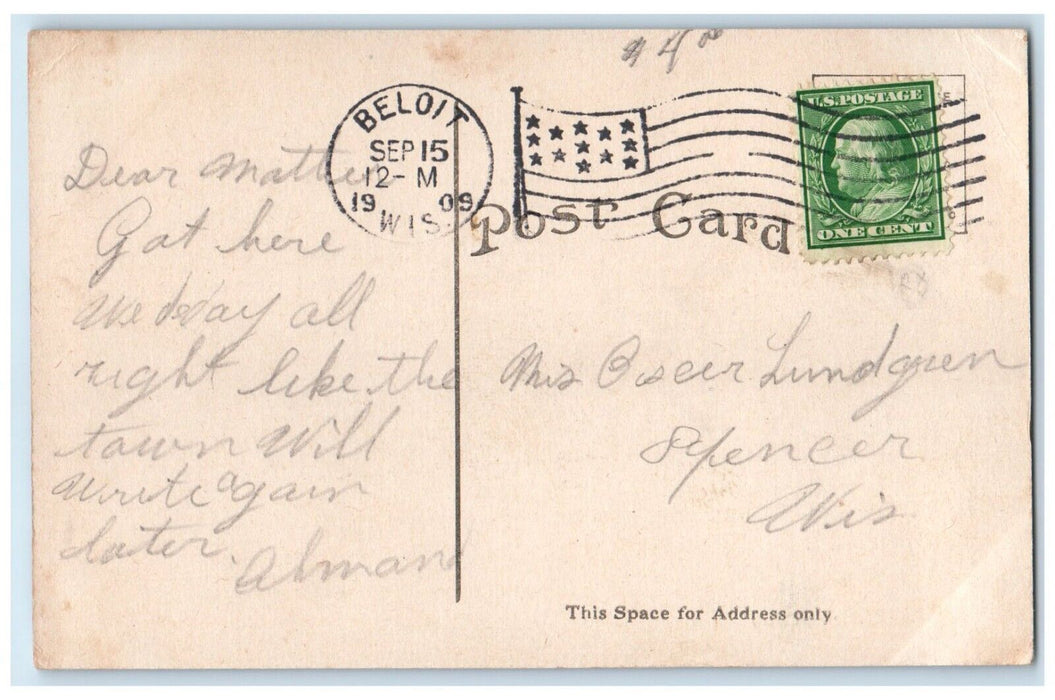 $4.00
BELOIT
SEP 15
12- M
1909
WIS.
U.S. POSTAGE
ONE CENT
Post Card
Dear Mother
Got here
Wedday all
right like the
town Will
write again
later.
Almand
Mrs Oscar Lundgren
Spencer
Wis
This Space for Address only